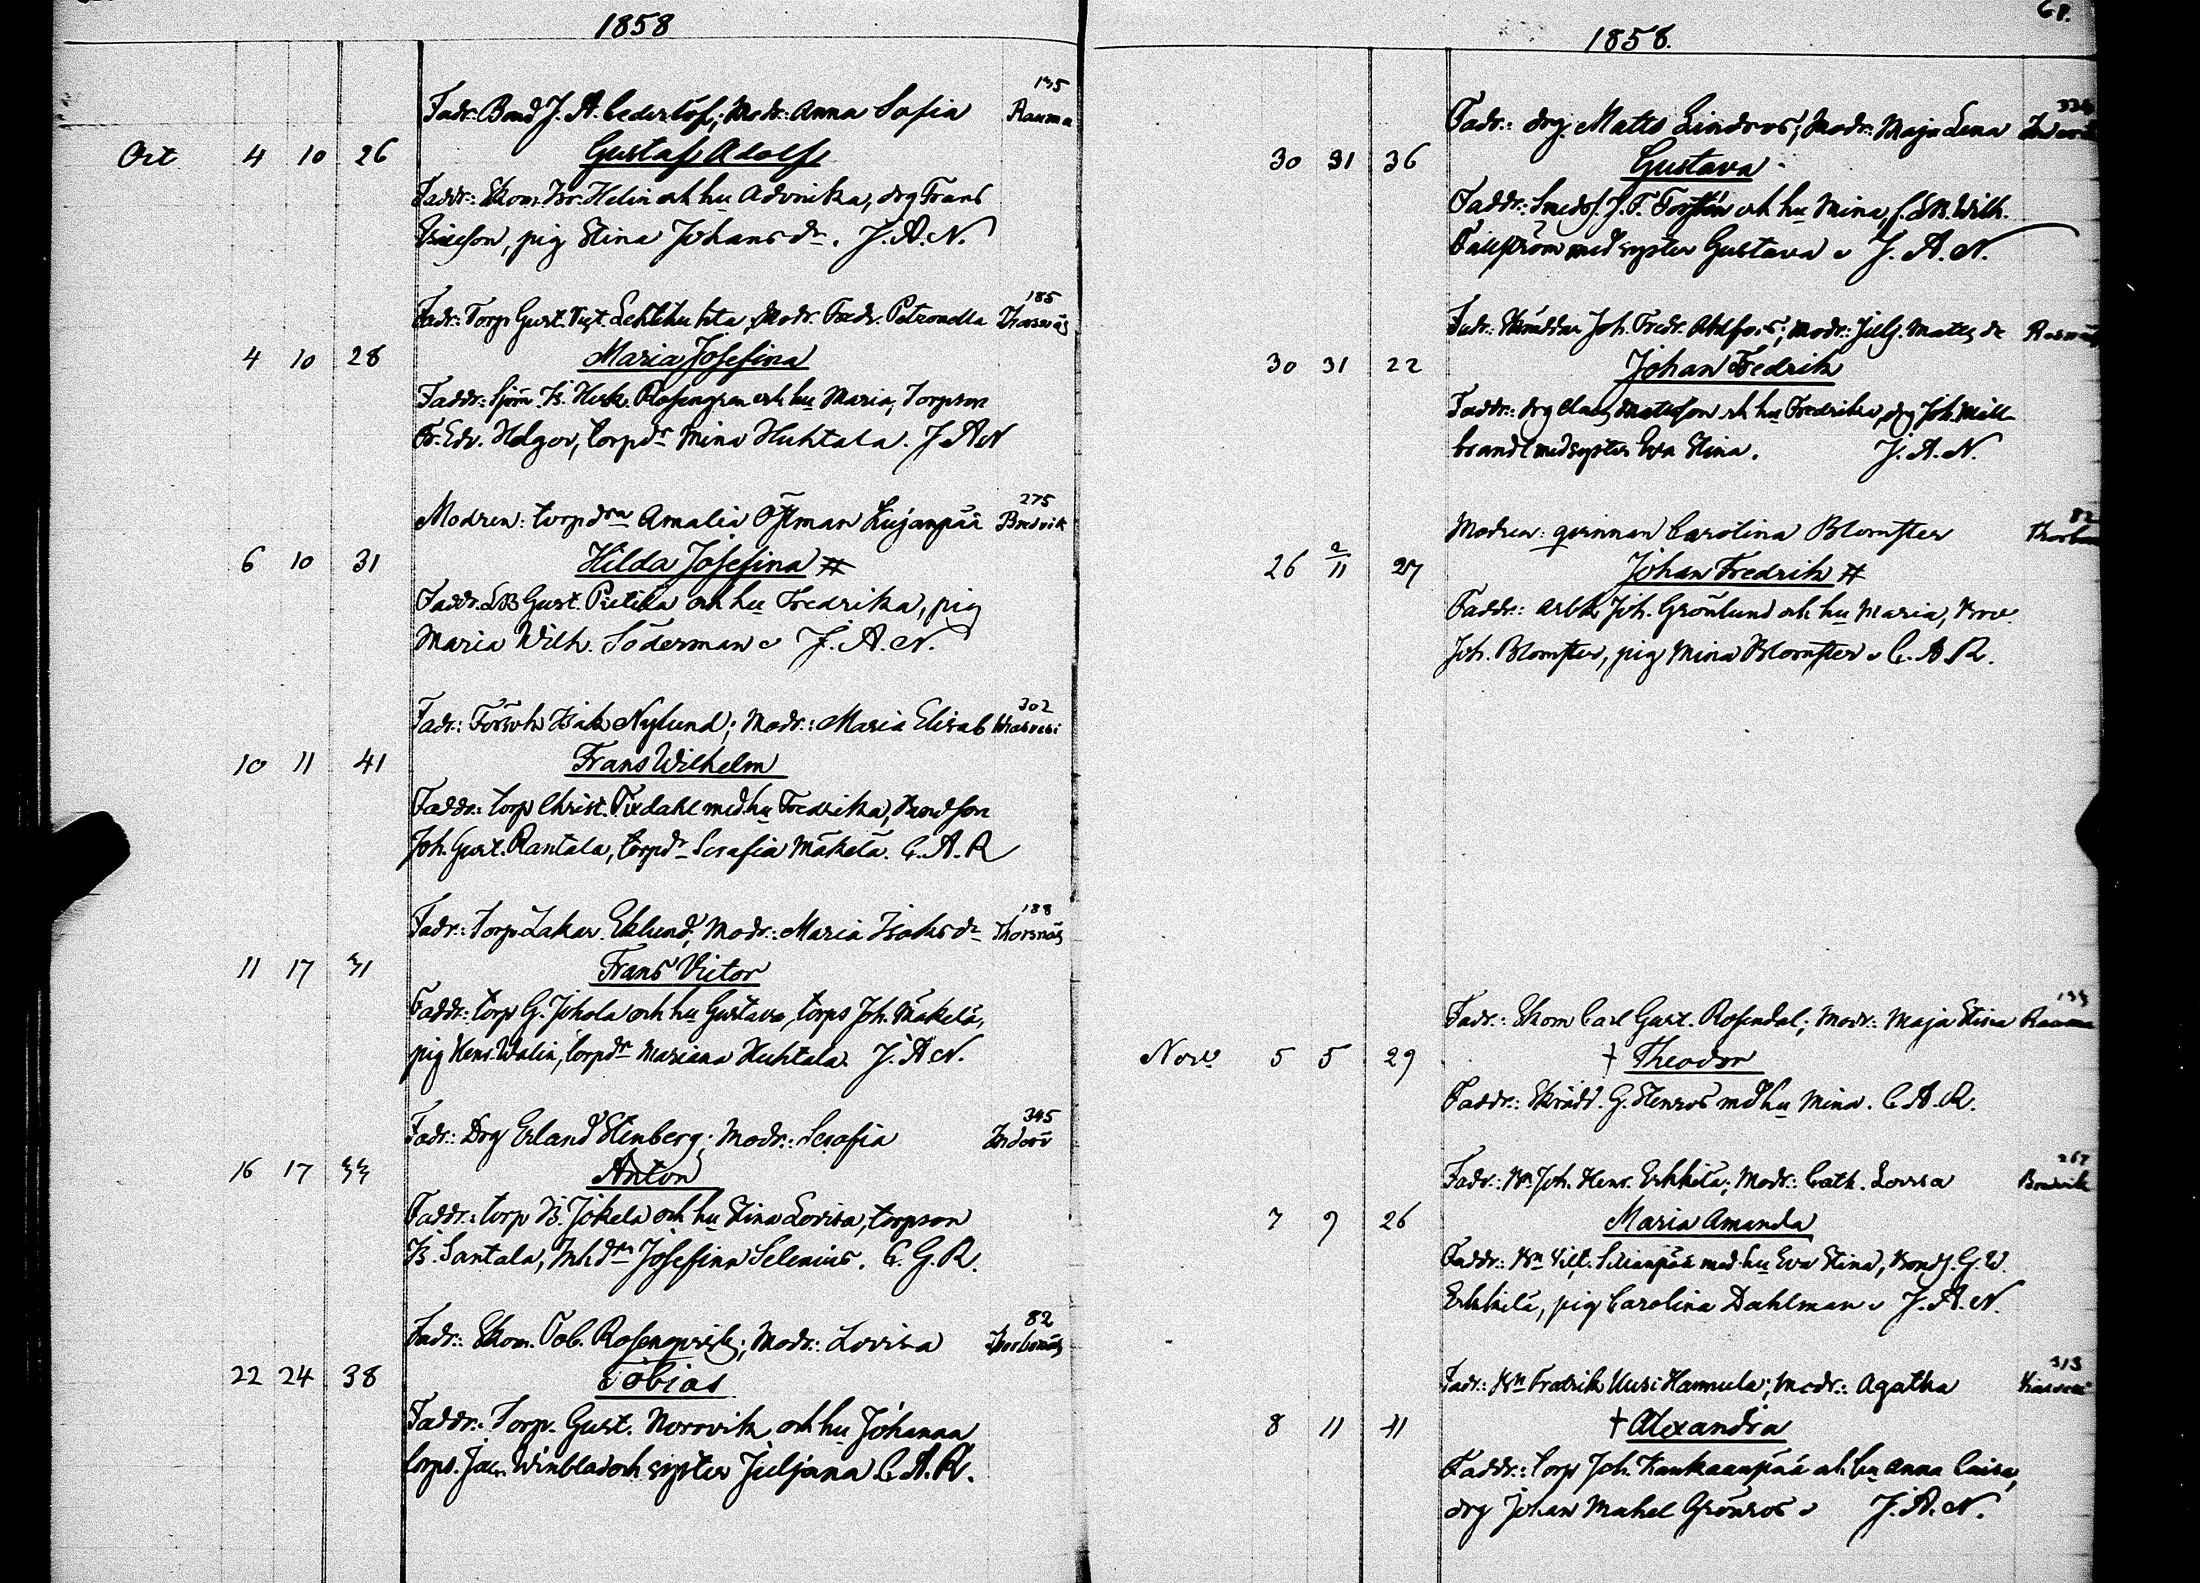 1858
135
Fadr: Bond J. A. Cederlöf; Modr: Anna Sofia Rauma
Oct 4 10 26 Gustaf Adolf
Faddr: Skom. Isr. Helin och hu Advrika, drg Frans
Ericson, pig Stina Johansdr. J. A. N.
185
Fadr: Torp Gust. Vigt. Lehtihuhta Modr. Fredr. Petronella Thorsnäs
4 10 28 Maria Josefina
Faddr: Sjöm Is. Henr. Rosengren och hu Maria, Torpson
Fr. Edv. Helgor, torpdr Mina Huhtala. J A N
275
Modren: torpdrn Amalia Öfman Kujanpää Bredvik
6 10 31 Hilda Josefina #
Faddr. LB Gust. Pietila och hu Fredrika, pig
Maria Wilh. Söderman J. A. N.
302
Fadr: Isak Nylund; Modr: Maria Elisab
10 11 41 Frans Wilhelm
Faddr: torp Christ. med hu Fredrika, Bondson
Joh. Gust. Rantala, torpdr Serafia Mäkelä. C. A. R
188
Fadr: torp Zakar. Eklund; Modr: Maria Isaksdr Thorsnäs
11 17 31 Frans Victor
Faddr: torp G. Johola och hu Gustava, torps Joh. Mäkelä,
pig Henr. Walin, torpdr Mariana Huhtala. J. A N.
345
Fadr: Drg Erland Stenberg; Modr: Serafia Inderö
16 17 33 Anton
Faddr: torp Is. Jokela och hu Stina Lovisa, torpson
Is. Santala, Inhdrn Josefina Selenius. C. G. R.
82
Fadr: Skom. Tob. Rosenqvist; Modr: Lovisa Thorlsnäs
22 24 38 Tobias
Faddr: Torp. Gust. Norrvik och hu Johanna
torps. Jac. Winblad och syster Juljana C. A. R.
1858.
Fadr: drg Matts Lindros; Modr: Maja Lena
30 31 36 Gustava
Faddr: Smeds J. F. Forstén och hu Mina, Wilh.
Fallström med syster Gustava J. A. N.
Fadr: Skräddar Joh. Fredr. Ahlfors; Modr: Julj. Matts dr
30 31 22 Johan Fredrik
Faddr: drg Mattsson och hu Fredrika, drg Joh. Mill
brandt med syster Eva Stina. J. A. N.
82
Modren: qvinnan Carolina Blomster
26 2/11 27 Johan Fredrik #
Faddr: arbk Joh. Grönlund och hu Maria,
Joh. Blomster, pig Mina Blomster C. A. R.
Fadr: Skom Carl Gust. Rosendal; Modr: Maja Stina Rauma
Nov 5 5 29 † Theodor
Faddr: Skrädd. G. Stenros med hu Mina. C. A. R.
267
Fadr: Bn Joh. Henr. Erkkilä; Modr: Cath. Lovisa Bredvik
7 9 26 Maria Amanda
Faddr: Bn Vikt. med hu Eva Stina, Bonds. G. W.
Erkkilä, pig Carolina Dahlman J. A. N.
313
Fadr: Bn Fredrik Uusi Hannula; Modr: Agatha
8 11 41 † Alexandra
Faddr: torp Joh. Kankaanpää och hu Anna Caisa,
drg Johan Makel Grönros J. A. N.